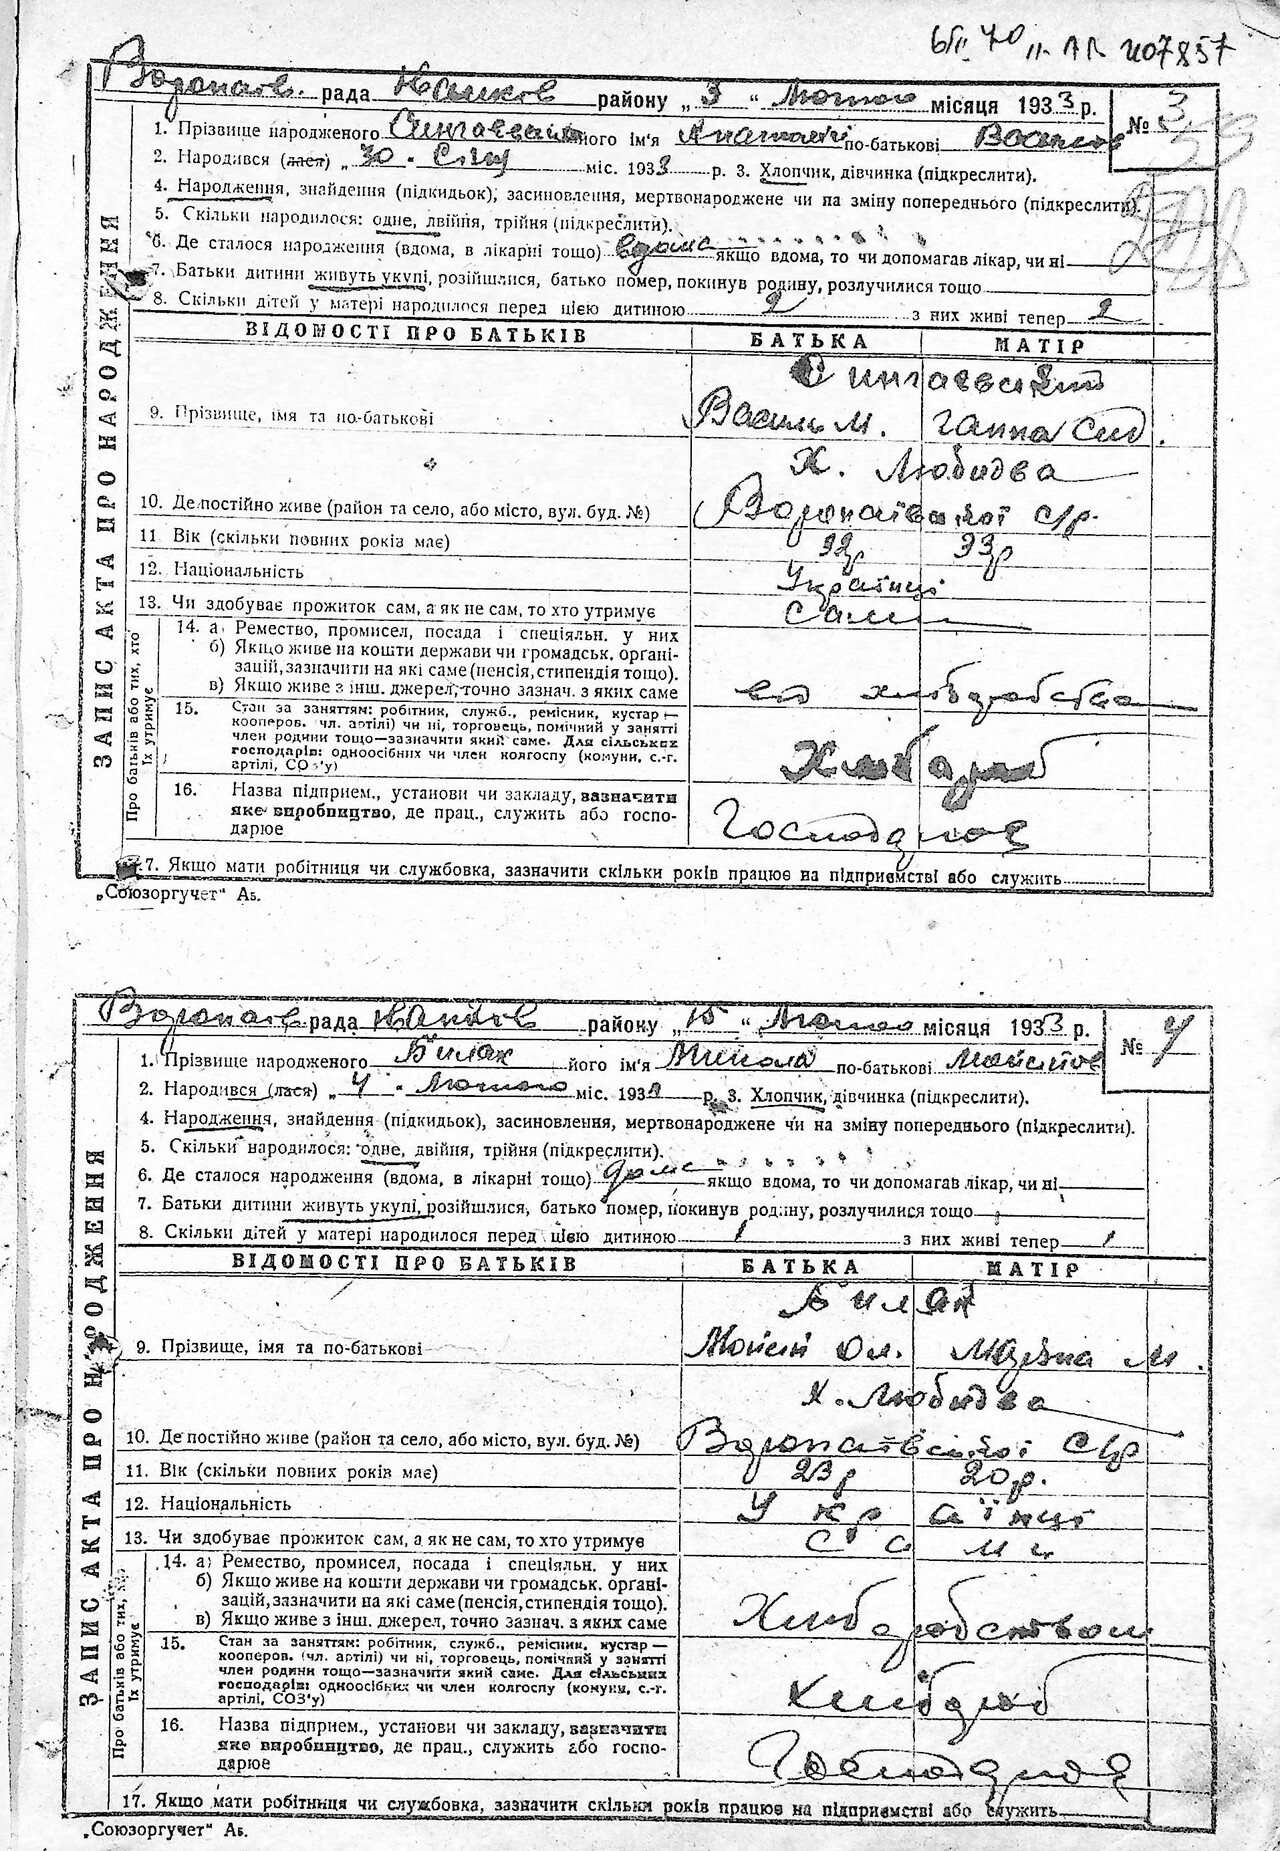 Воропаїв. рада району „3“ Лютого місяця 1933 р.
№ 3
1. Прізвище народженого його ім'я Анатолій по-батькові Васильов
2. Народився (лася) „30 - Січн міс. 1933 р. 3. Хлопчик, дівчинка (підкреслити).
4. Народження, знайдення (підкидьок), засиновлення, мертвонароджене чи на зміну попереднього (підкреслити).
5. Скільки народилося: одне, двійня, трійня (підкреслити).
6. Де сталося народження (вдома, в лікарні тощо) вдома якщо вдома, то чи допомагав лікар, чи ні
7. Батьки дитини живуть укупі, розійшлися, батько помер, покинув родину, розлучилися тощо
8. Скільки дітей у матері народилося перед цією дитиною 2 з них живі тепер 2
ВІДОМОСТІ ПРО БАТЬКІВ БАТЬКА МАТІР
9. Прізвище, імя та по-батькові Василь М. Ганна Сид.
Х. Любидва
10. Де постійно живе (район та село, або місто, вул. буд. №) Воропаївської с/р.
11 Вік (скільки повних років має) 32р 33р
12. Національність Українці
13. Чи здобуває прожиток сам, а як не сам, то хто утримує Сами
14. а) Ремество, промисел, посада і спеціяльн. у них
б) Якщо живе на кошти держави чи громадськ. органі-
зацій, зазначити на які саме (пенсія, стипендія тощо).
в) Якщо живе з інш. джерел, точно зазнач. з яких саме від хліборобства
15. Стан за заняттям: робітник, служб., ремісник, кустар —
кооперов. (чл. артілі) чи ні, торговець, помічний у занятті
член родини тощо—зазначити який саме. Для сільських
господарів: одноосібних чи член колгоспу (комуни, с.-г.
артілі, СОЗ'у) Хлібороб
16. Назва підприєм., установи чи закладу, зазначити
яке виробництво, де прац., служить або госпо-
дарює
17. Якщо мати робітниця чи службовка, зазначити скільки років працює на підприємстві або служить
ЗАПИС АКТА ПРО НАРОДЖЕННЯ
Про батьків або тих, хто
їх утримує
„Союзоргучет“ Аб.
Воропаїв рада району „15“ Лютого місяця 1933 р.
№ 4
1. Прізвище народженого Билак його ім'я Микола по-батькові
2. Народився (лася) „4 - Лютого міс. 1933 р. 3. Хлопчик, дівчинка (підкреслити).
4. Народження, знайдення (підкидьок), засиновлення, мертвонароджене чи на зміну попереднього (підкреслити).
5. Скільки народилося: одне, двійня, трійня (підкреслити).
6. Де сталося народження (вдома, в лікарні тощо) дома якщо вдома, то чи допомагав лікар, чи ні
7. Батьки дитини живуть укупі, розійшлися, батько помер, покинув родину, розлучилися тощо
8. Скільки дітей у матері народилося перед цією дитиною 1 з них живі тепер 1
ВІДОМОСТІ ПРО БАТЬКІВ БАТЬКА МАТІР
Билак
9. Прізвище, імя та по-батькові Мойсій Ол. М.
Х. Любидва
10. Де постійно живе (район та село, або місто, вул. буд. №) Воропаївської с/р
11. Вік (скільки повних років має) 23р 20р.
12. Національність Українці
13. Чи здобуває прожиток сам, а як не сам, то хто утримує Сами
14. а) Ремество, промисел, посада і спеціяльн. у них
б) Якщо живе на кошти держави чи громадськ. органі-
зацій, зазначити на які саме (пенсія, стипендія тощо).
в) Якщо живе з інш. джерел, точно зазнач. з яких саме Хліборобством
15. Стан за заняттям: робітник, служб., ремісник, кустар —
кооперов. (чл. артілі) чи ні, торговець, помічний у занятті
член родини тощо—зазначити який саме. Для сільських
господарів: одноосібних чи член колгоспу (комуни, с.-г.
артілі, СОЗ'у) Хлібороб
16. Назва підприєм., установи чи закладу, зазначити
яке виробництво, де прац., служить або госпо-
дарює
17. Якщо мати робітниця чи службовка, зазначити скільки років працює на підприємстві або служить
ЗАПИС АКТА ПРО НАРОДЖЕННЯ
Про батьків або тих, хто
їх утримує
„Союзоргучет“ Аб.